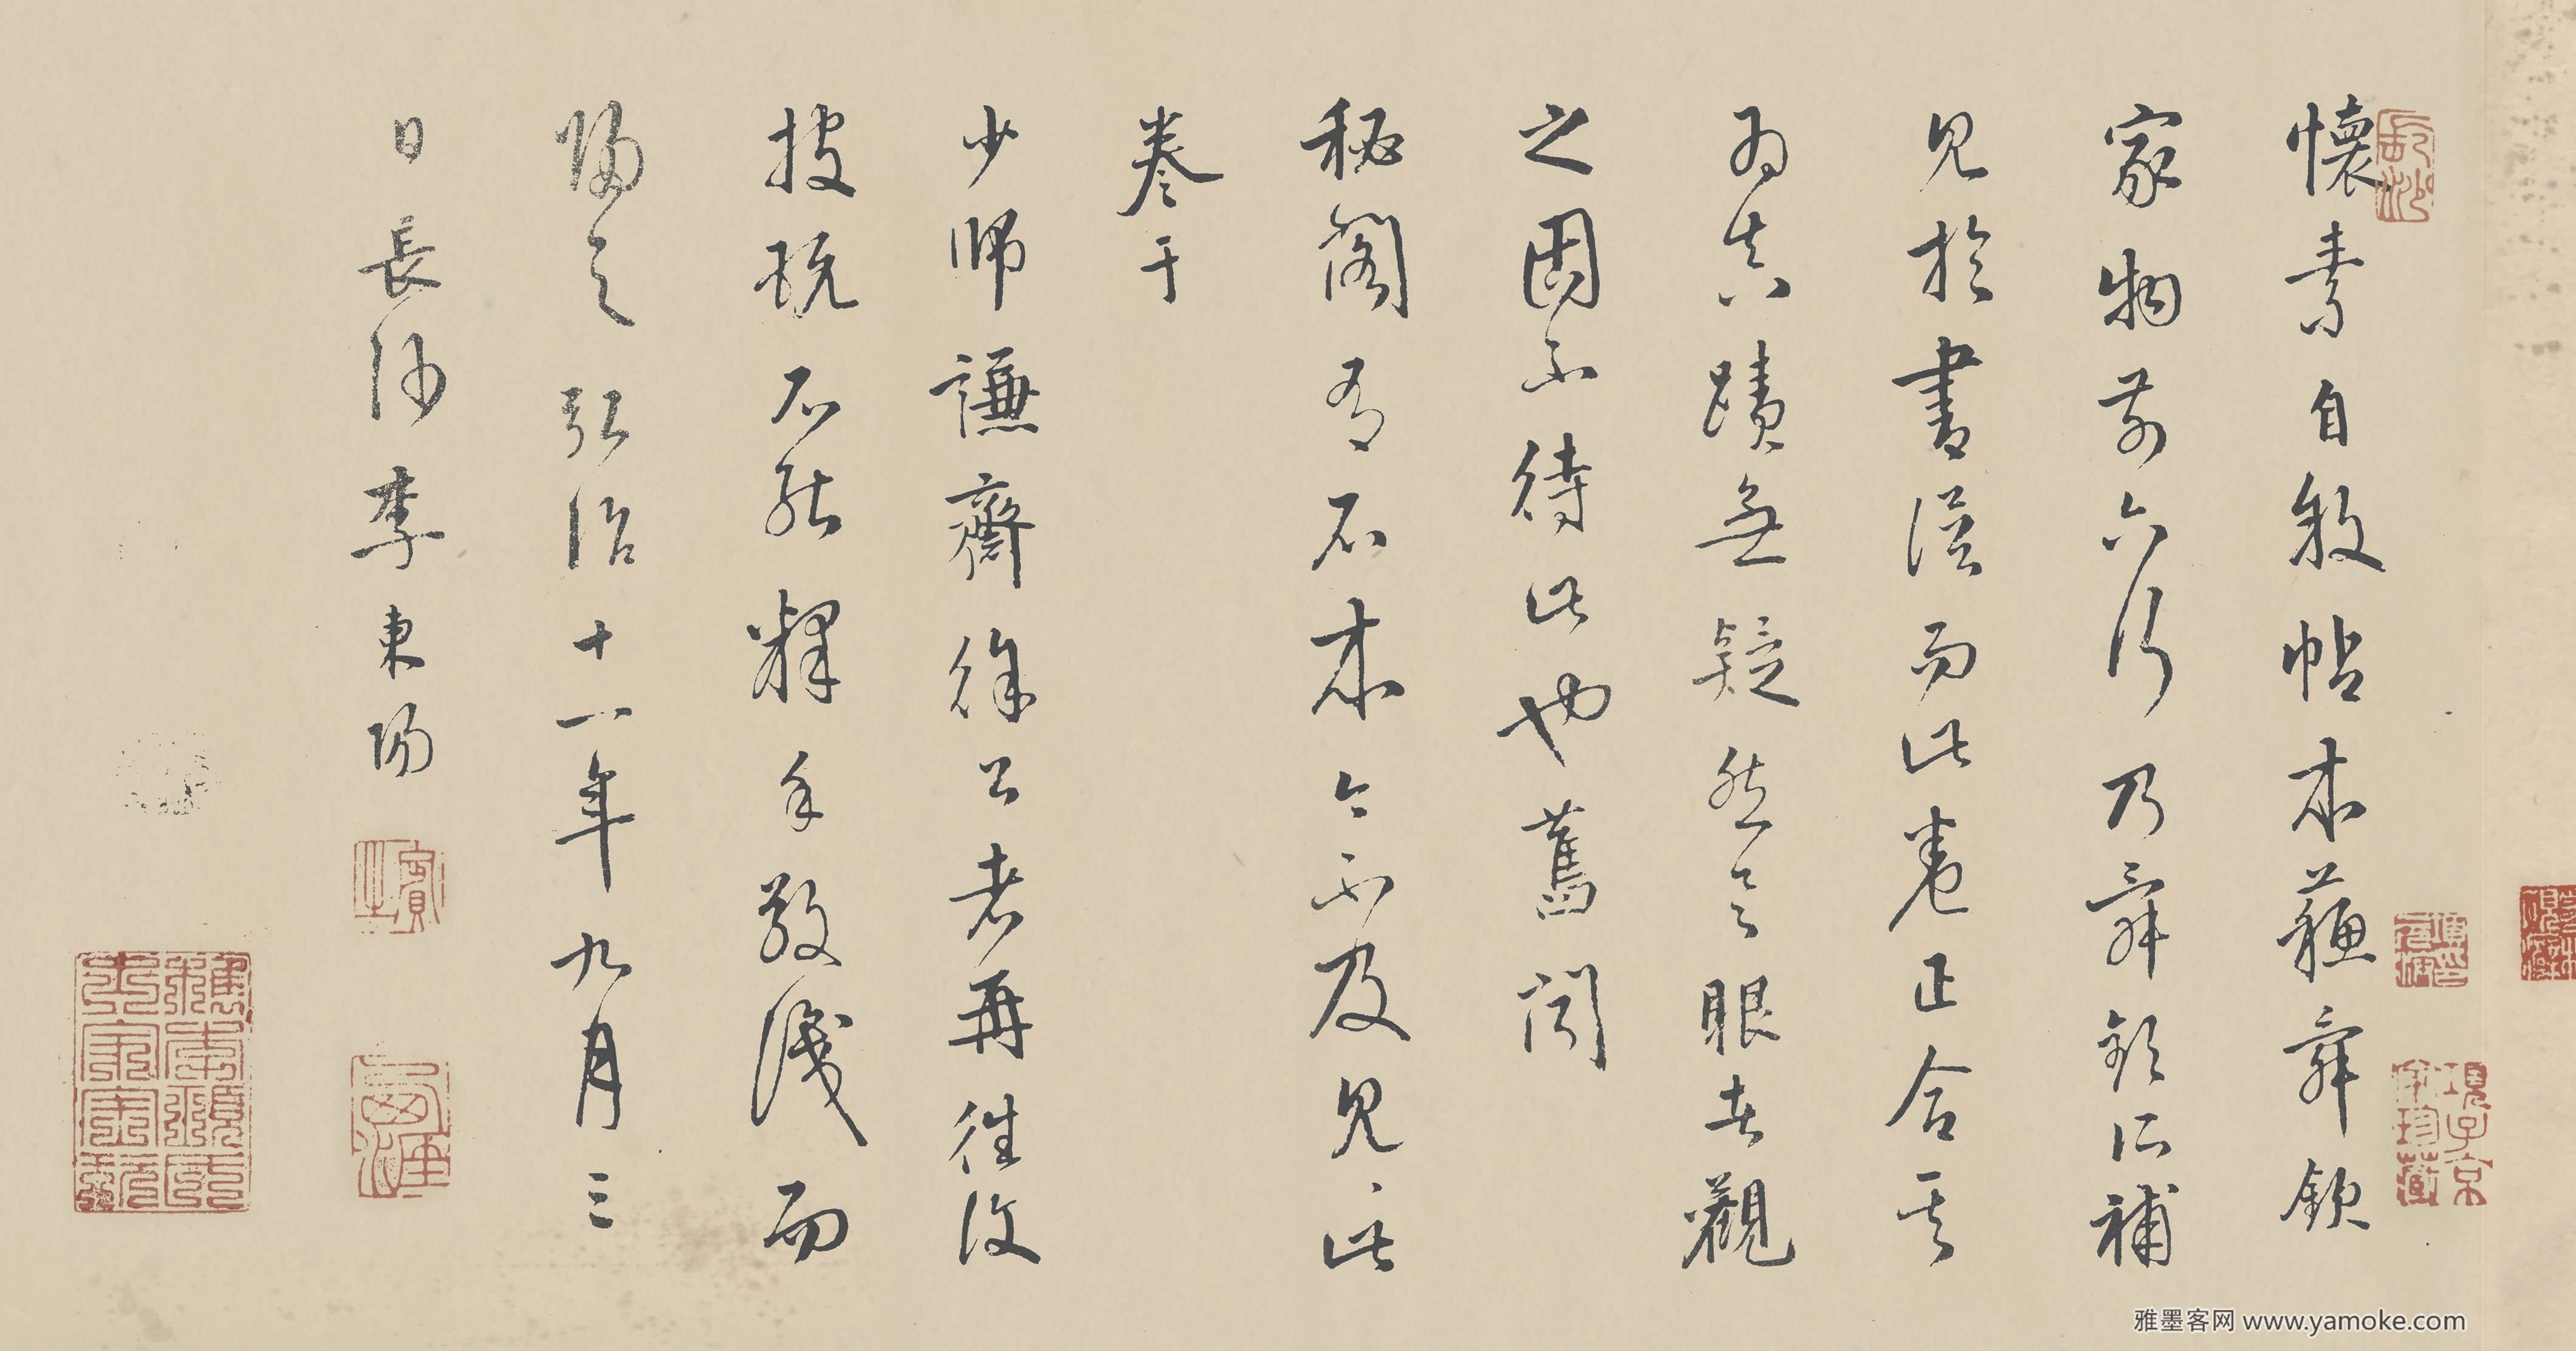 懷素自敘帖本蘇舜欽
家物前六行乃舜欽所補
見於書譜而此卷正合其
為真蹟無疑然具眼者觀
之固不待此也舊聞
秘閣有石本今不及見此
卷于
少師謙齋徐公老再往復
披玩不能釋手敬識而
歸之弘治十一年九月三
日長沙李東陽
賓之
項子京家珍藏
雅墨客网 www.yamoke.com